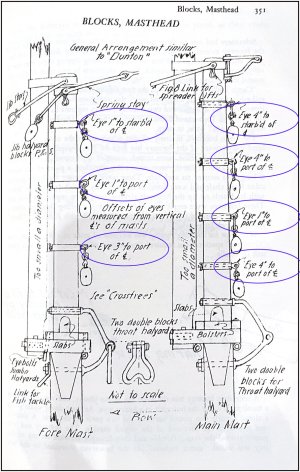 Blocks, Masthead 351
BLOCKS, MASTHEAD
General Arrangement similar
to "Dunton"
Jib stay
Spring stay
Fig 8 Link for
spreader lifts
Jib halyard
blocks P.& S.
Eye 1" to starb'd
of ℄
Eye 4" to
starb'd of
℄
Eye 1" to port
of ℄
Eye 4" to
port of ℄
Offsets of eyes
measured from vertical
℄'s of masts
Too small a diameter
Too small
a diameter
Eye 3" to port
of ℄
Eye 1" to
port of ℄
Eye 4" to
port of ℄
See "Crosstrees"
Slabs
Two double blocks
throat halyard
Slabs
Bolsters
Eyebolts
Jumbo
Halyards
Link for
Fish tackle
Not to scale
Two double
blocks for
Throat halyard
Fore Mast
Main Mast